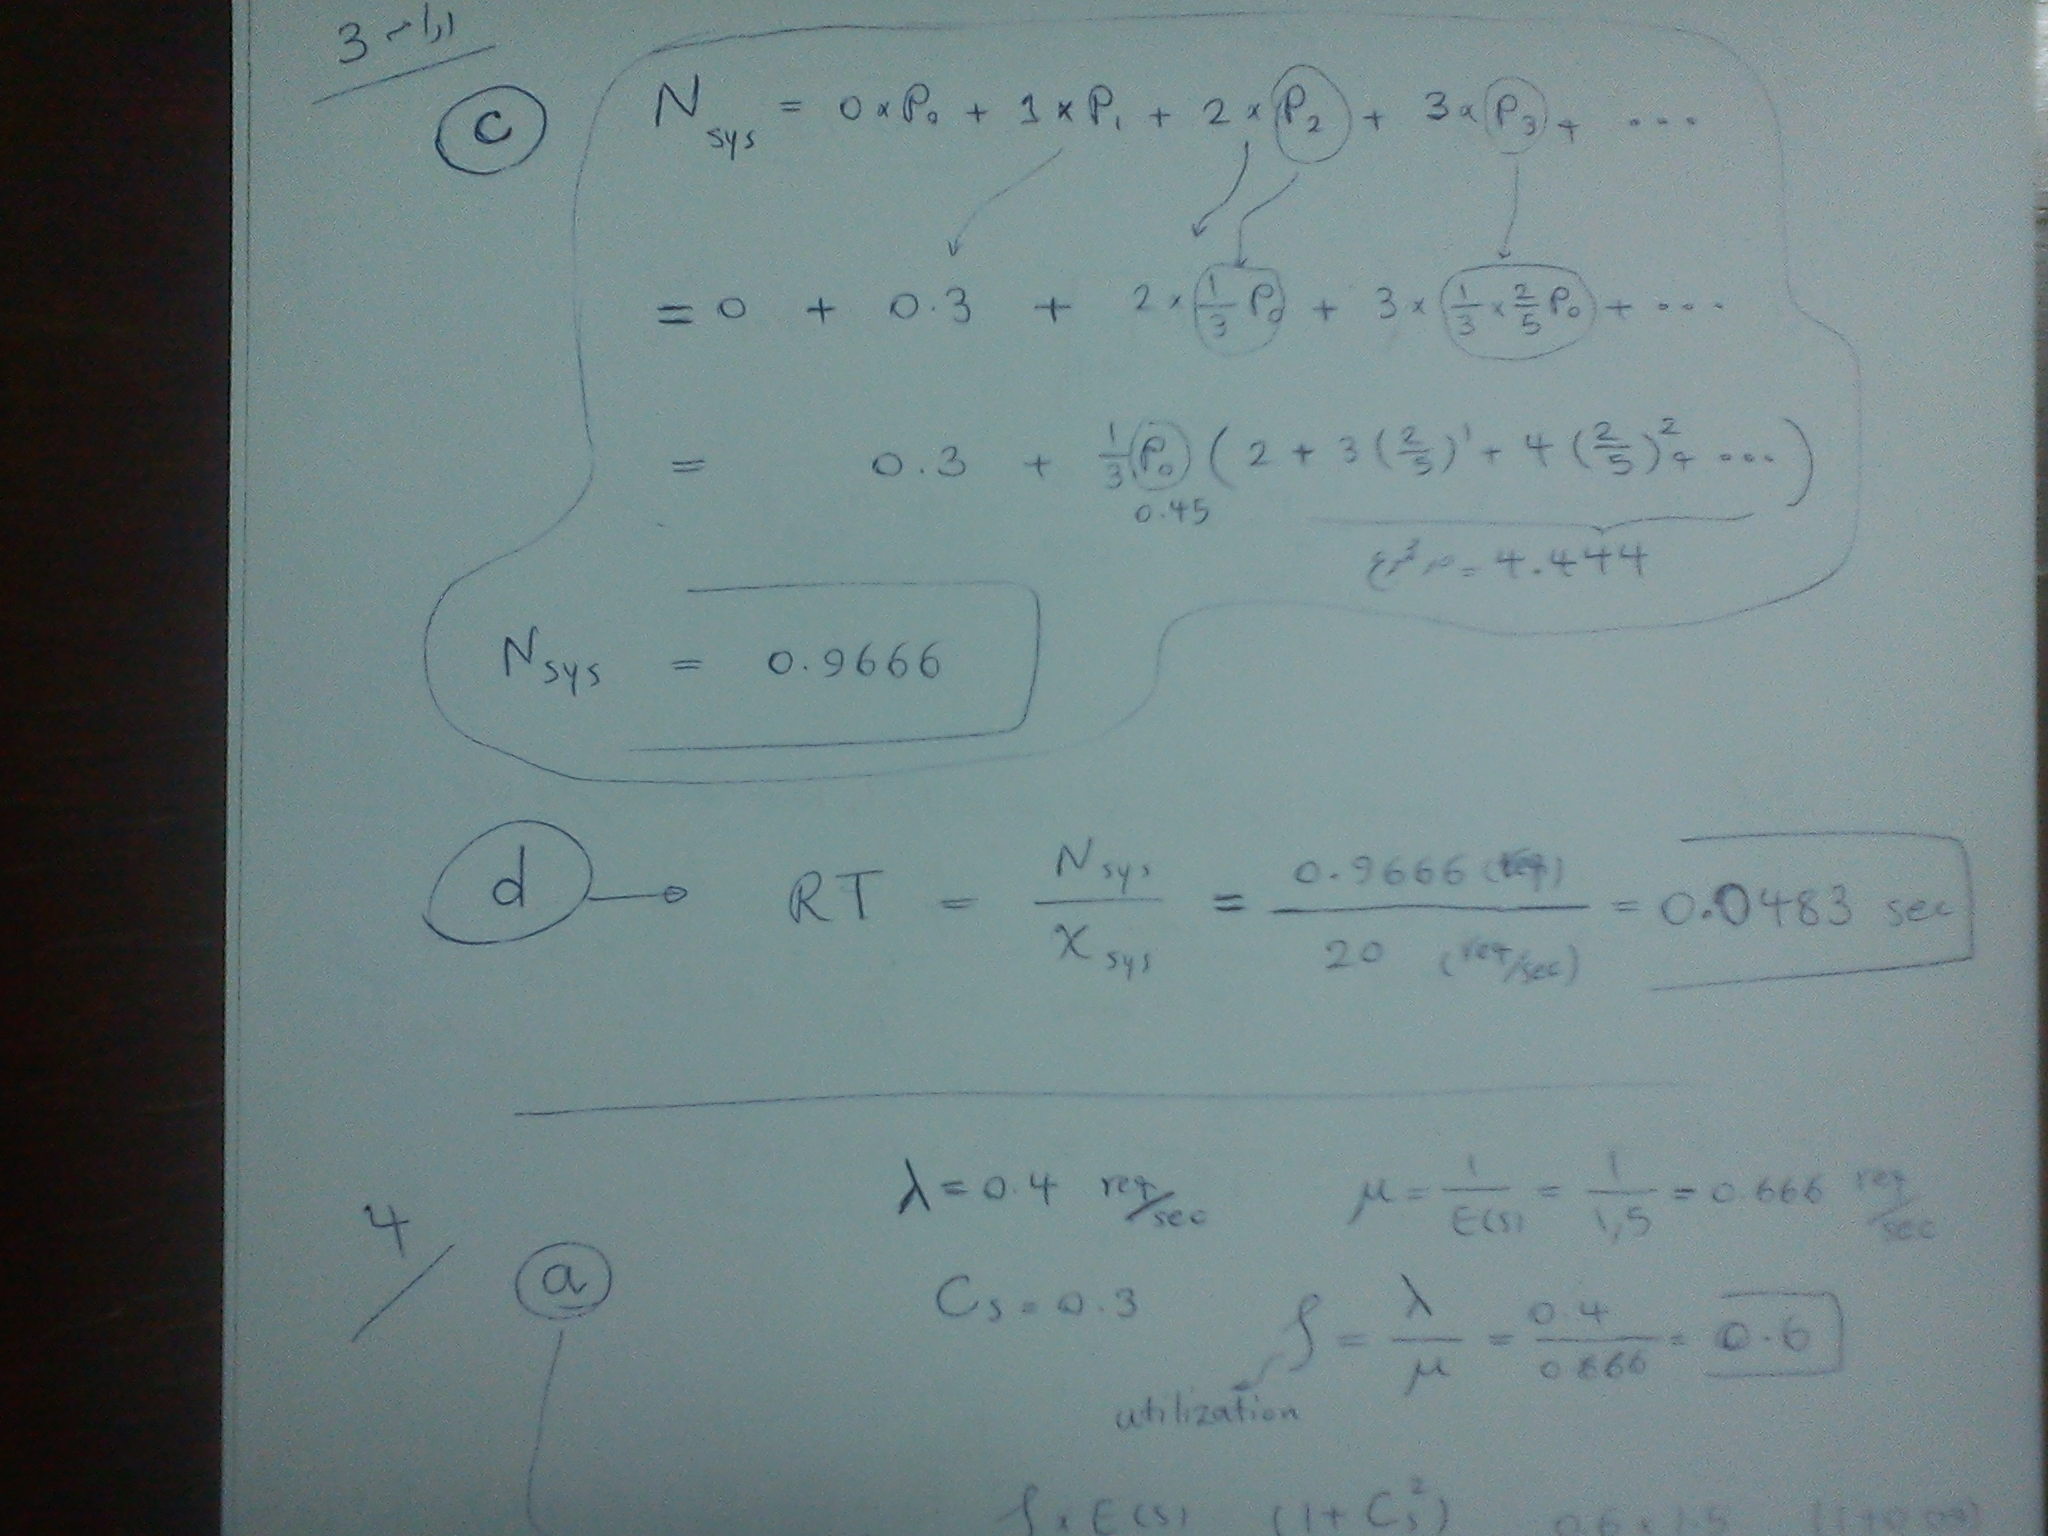 3 ادامه
c
N sys = 0 × P₀ + 1 × P₁ + 2 × P₂ + 3 × P₃ + ...
= 0 + 0.3 + 2 × 1/3 P₀ + 3 × 1/3 × 2/5 P₀ + ...
= 0.3 + 1/3 P₀ ( 2 + 3 (2/5)¹ + 4 (2/5)² + ... )
0.45
= 4.444
N sys = 0.9666
d → RT = N sys / X sys = 0.9666 (req) / 20 (req/sec) = 0.0483 sec
4
a
λ = 0.4 req/sec μ = 1/E(S) = 1/1,5 = 0.666 req/sec
Cs = 0.3 ρ = λ/μ = 0.4/0.666 = 0.6
utilization
ρ × E(S) (1 + Cs²) 0.6 × 1.5